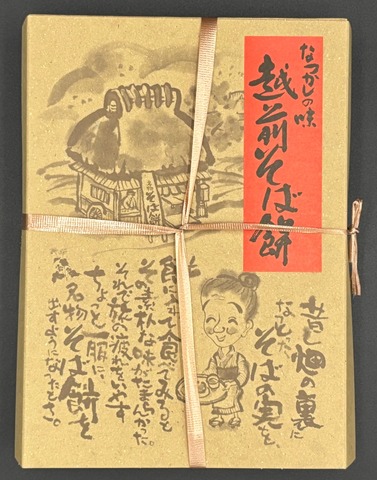 なつかしの味
越前そば餅
昔し畑の裏に
なった
そばの実を、
餅に入れて食べてみると
その素朴な味がたまらなかった。
それで旅の疲れをいやす
ちょっと一服に、
名物そば餅を
出すようになったとさ。
そば餅